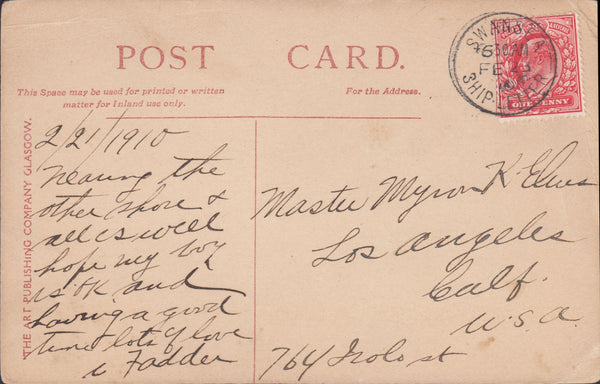 POST CARD.
This Space may be used for printed or written
matter for Inland use only.
For the Address.
THE ART PUBLISHING COMPANY GLASGOW.
2/21/1910
Nearing the
other shore &
all is well
hope my boy
is OK and
having a good
time lots of love
Fadder
Master Myron K Elwes
Los Angeles
Calf.
U.S.A.
764 Irolo st
SWANSEA
FE
SHIP LETTER
ONE PENNY